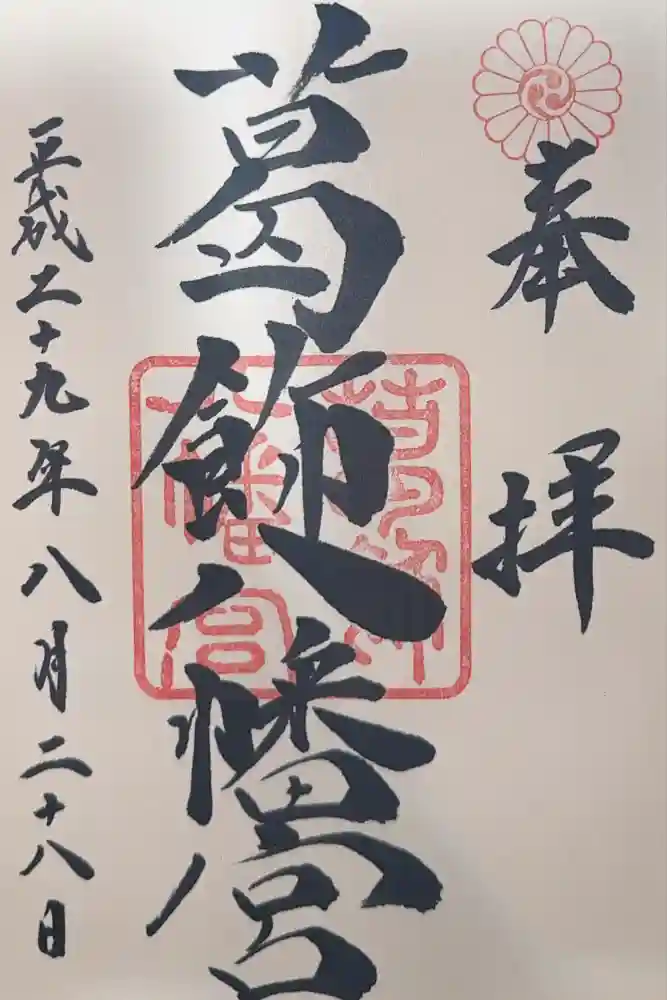 奉拝
葛飾八幡宮
葛飾八幡宮
平成二十九年八月二十八日